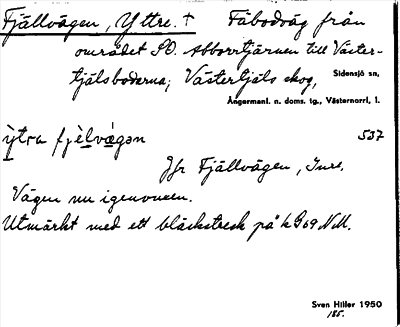 Fjällvägen, Yttre. † Fäbodväg från
området SO. Abborrtjärnen till Väster-
tjälsbodarna; Västertjäls skog, Sidensjö sn,
Ångermanl. n. doms. tg., Västernorrl. l.
ỳtra fjèlvægən 537
Jfr Fjällvägen, Inre.
Vägen nu igenvuxen.
Utmärkt med ett bläckstreck på k G69 N.M.
Sven Hiller 1950
185.